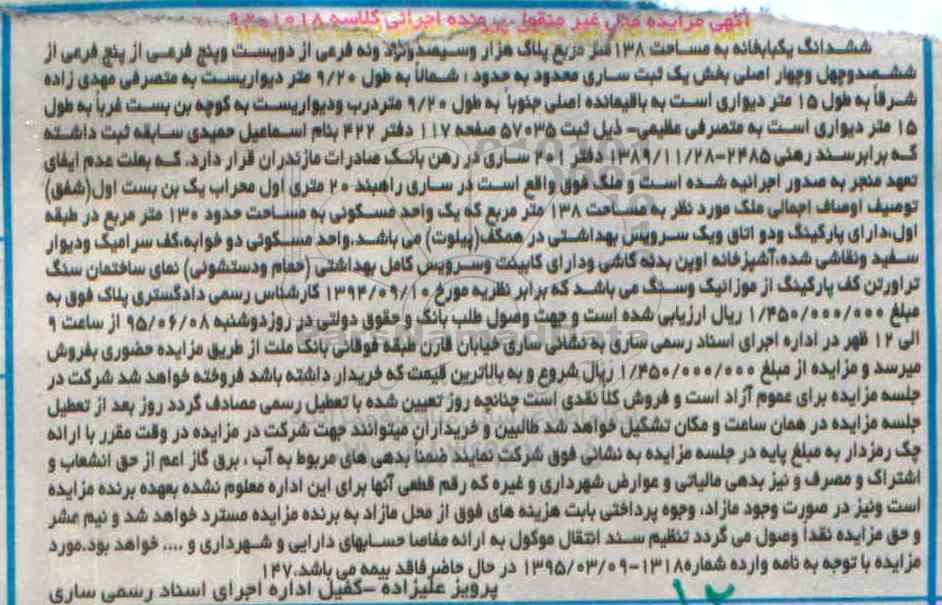 آگهی مزایده مال غیر منقول پرونده اجرائی کلاسه ۹۲۰۱۰۱۸
ششدانگ یکبابخانه به مساحت ۱۳۸ متر مربع پلاک هزار وسیصدونود ونه فرعی از دویست وپنج فرعی از پنج فرعی از
ششصدوچهل وچهار اصلی بخش یک ثبت ساری محدود به حدود : شمالاً به طول ۹/۲۰ متر دیواریست به متصرفی مهدی زاده
شرقاً به طول ۱۵ متر دیواری است به باقیمانده اصلی جنوباً به طول ۹/۲۰ متردرب ودیواریست به کوچه بن بست غرباً به طول
۱۵ متر دیواری است به متصرفی عظیمی- ذیل ثبت ۵۷۰۳۵ صفحه ۱۱۷ دفتر ۴۲۲ بنام اسماعیل حمیدی سابقه ثبت داشته
که برابرسند رهنی ۲۴۸۵-۱۳۸۹/۱۱/۲۸ دفتر ۲۰۱ ساری در رهن بانک صادرات مازندران قرار دارد. که بعلت عدم ایفای
تعهد منجر به صدور اجرائیه شده است و ملک فوق واقع است در ساری راهبند ۲۰ متری اول محراب یک بن بست اول(شفق)
توصیف اوصاف اجمالی ملک مورد نظر به مساحت ۱۳۸ متر مربع که یک واحد مسکونی به مساحت حدود ۱۳۰ متر مربع در طبقه
اول،دارای پارکینگ ودو اتاق ویک سرویس بهداشتی در همکف(پیلوت) می باشد،واحد مسکونی دو خوابه،کف سرامیک ودیوار
سفید ونقاشی شده،آشپزخانه اوپن بدنه کاشی ودارای کابینت وسرویس کامل بهداشتی (حمام ودستشوئی) نمای ساختمان سنگ
تراورتن کف پارکینگ از موزائیک وسنگ می باشد که برابر نظریه مورخ ۱۳۹۴/۰۹/۱۰ کارشناس رسمی دادگستری پلاک فوق به
مبلغ ۱/۴۵۰/۰۰۰/۰۰۰ ریال ارزیابی شده است و جهت وصول طلب بانک و حقوق دولتی در روزدوشنبه ۹۵/۰۶/۰۸ از ساعت ۹
الی ۱۲ ظهر در اداره اجرای اسناد رسمی ساری به نشانی ساری خیابان قارن طبقه فوقانی بانک ملت از طریق مزایده حضوری بفروش
میرسد و مزایده از مبلغ ۱/۴۵۰/۰۰۰/۰۰۰ ریال شروع و به بالاترین قیمت که خریدار داشته باشد فروخته خواهد شد شرکت در
جلسه مزایده برای عموم آزاد است و فروش کلا نقدی است چنانچه روز تعیین شده با تعطیل رسمی مصادف گردد روز بعد از تعطیل
جلسه مزایده در همان ساعت و مکان تشکیل خواهد شد طالبین و خریداران میتوانند جهت شرکت در مزایده در وقت مقرر با ارائه
چک رمزدار به مبلغ پایه در جلسه مزایده به نشانی فوق شرکت نمایند ضمناً بدهی های مربوط به آب ، برق گاز اعم از حق انشعاب و
اشتراک و مصرف و نیز بدهی مالیاتی و عوارض شهرداری و غیره که رقم قطعی آنها برای این اداره معلوم نشده بعهده برنده مزایده
است ونیز در صورت وجود مازاد، وجوه پرداختی بابت هزینه های فوق از محل مازاد به برنده مزایده مسترد خواهد شد و نیم عشر
و حق مزایده نقدا وصول می گردد تنظیم سند انتقال موکول به ارائه مفاصا حسابهای دارایی و شهرداری و .... خواهد بود.مورد
مزایده با توجه به نامه وارده شماره۱۳۱۸-۱۳۹۵/۰۳/۰۹ در حال حاضرفاقد بیمه می باشد.۱۴۷
پرویز علیزاده -کفیل اداره اجرای اسناد رسمی ساری